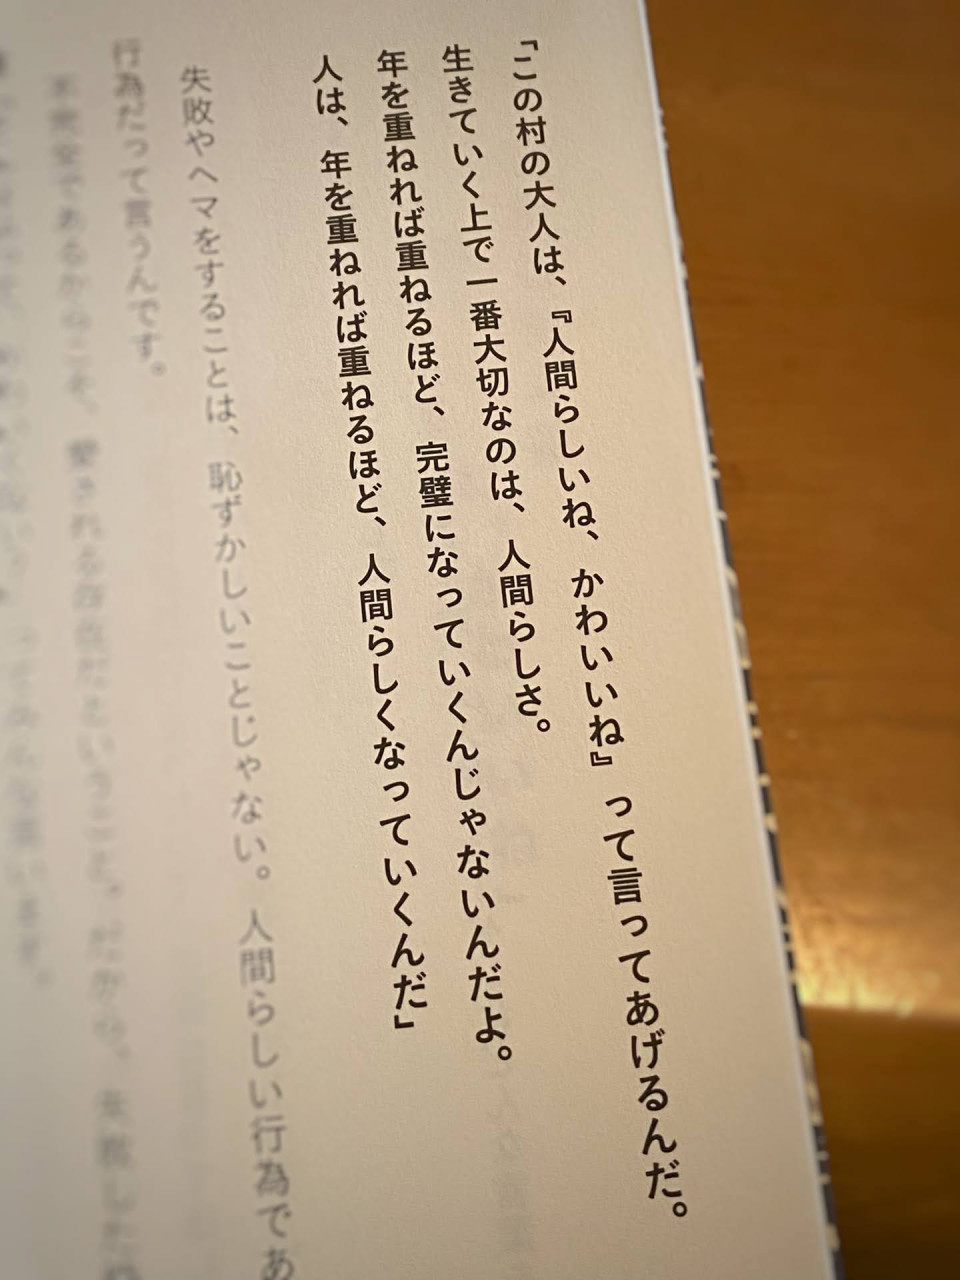 「この村の大人は、『人間らしいね、かわいいね』って言ってあげるんだ。
生きていく上で一番大切なのは、人間らしさ。
年を重ねれば重ねるほど、完璧になっていくんじゃないんだよ。
人は、年を重ねれば重ねるほど、人間らしくなっていくんだ」
失敗やヘマをすることは、恥ずかしいことじゃない。人間らしい行為であ
行為だって言うんです。
不完全であるからこそ、愛される存在だということ。だから、失敗した